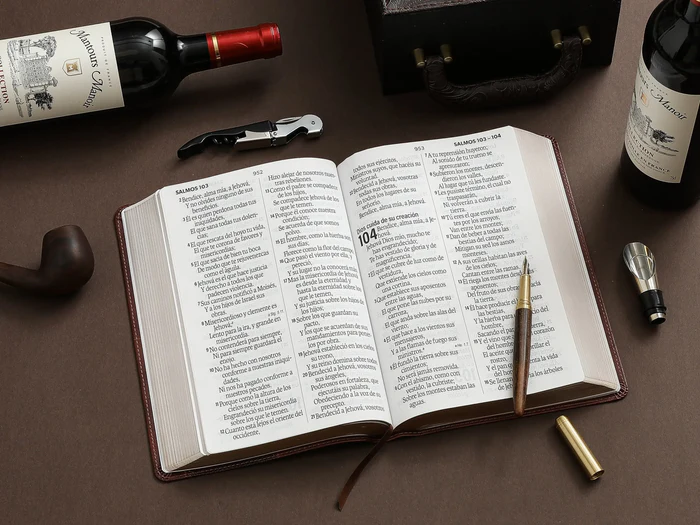 Mantours
Manoir
COLLECTION
Manoir
SALMOS 103
952
2 Bendice, alma mía, a Jehová,
Y no olvides ninguno de sus
beneficios.
3 Él es quien perdona todas tus
iniquidades,
El que sana todas tus dolen-
cias;
4 El que rescata del hoyo tu vida,
El que te corona de favores y
misericordias;
5 El que sacia de bien tu boca
De modo que te rejuvenezcas
como el águila.
6 Jehová es el que hace justicia
Y derecho a todos los que
padecen violencia.
7 Sus caminos notificó a Moisés,
Y a los hijos de Israel sus
obras.
8 Misericordioso y clemente es
Jehová;
Lento para la ira, y grande en
misericordia.
9 No contenderá para siempre,
Ni para siempre guardará el
enojo.
10 No ha hecho con nosotros
conforme a nuestras iniqui-
dades,
Ni nos ha pagado conforme a
nuestros pecados.
11 Porque como la altura de los
cielos sobre la tierra,
Engrandeció su misericordia
sobre los que le temen.
12 Cuanto está lejos el oriente del
occidente,
Hizo alejar de nosotros nues-
tras rebeliones.
13 Como el padre se compadece
de los hijos,
Se compadece Jehová de los
que le temen.
14 Porque él conoce nuestra
condición;
Se acuerda de que somos
polvo.
15 El hombre, como la hierba son
sus días;
Florece como la flor del campo,
16 Que pasó el viento por ella, y
pereció,
Y su lugar no la conocerá más.
17 Mas la misericordia de Jehová
es desde la eternidad y
hasta la eternidad sobre los
que le temen,
Y su justicia sobre los hijos de
los hijos;
18 Sobre los que guardan su
pacto,
Y los que se acuerdan de sus
mandamientos para poner-
los por obra.
19 Jehová estableció en los cielos
su trono,
Y su reino domina sobre todos.
20 Bendecid a Jehová, vosotros
sus ángeles,
Poderosos en fortaleza, que
ejecutáis su palabra,
Obedeciendo a la voz de su
precepto.
21 Bendecid a Jehová, vosotros
953
SALMOS 103–104
todos sus ejércitos,
Ministros suyos, que hacéis su
voluntad.
22 Bendecid a Jehová, vosotras
todas sus obras,
En todos los lugares de su
señorío.
Bendice, alma mía, a Jehová.
Dios cuida de su creación
104 Bendice, alma mía, a Je-
hová.
Jehová Dios mío, mucho te
has engrandecido;
Te has vestido de gloria y de
magnificencia.
2 El que se cubre de luz como de
vestidura,
Que extiende los cielos como
una cortina,
3 Que establece sus aposentos
entre las aguas,
El que pone las nubes por su
carroza,
El que anda sobre las alas del
viento;
4 El que hace a los vientos sus
mensajeros,
Y a las flamas de fuego sus
ministros.
5 Él fundó la tierra sobre sus
cimientos;
No será jamás removida.
6 Con el abismo, como con
vestido, la cubriste;
Sobre los montes estaban las
aguas.
7 A tu reprensión huyeron;
Al sonido de tu trueno se
apresuraron;
8 Subieron los montes, descen-
dieron los valles,
Al lugar que tú les fundaste.
9 Les pusiste término, el cual no
traspasarán,
Ni volverán a cubrir la
tierra.
10 Tú eres el que envía las fuen-
tes por los arroyos;
Van entre los montes;
11 Dan de beber a todas las
bestias del campo;
Mitigan su sed los asnos
monteses.
12 A sus orillas habitan las aves
de los cielos;
Cantan entre las ramas.
13 Él riega los montes desde
aposentos;
Del fruto de sus obras
la tierra.
14 Él hace producir el
para
Y la hierba para
hombre,
Sacando el pan de la tierra,
15 Y el vino que
corazón del hombre,
El aceite que
el rostro,
Y el pan que sustenta la vida
del hombre.
16 Se llenan
árboles